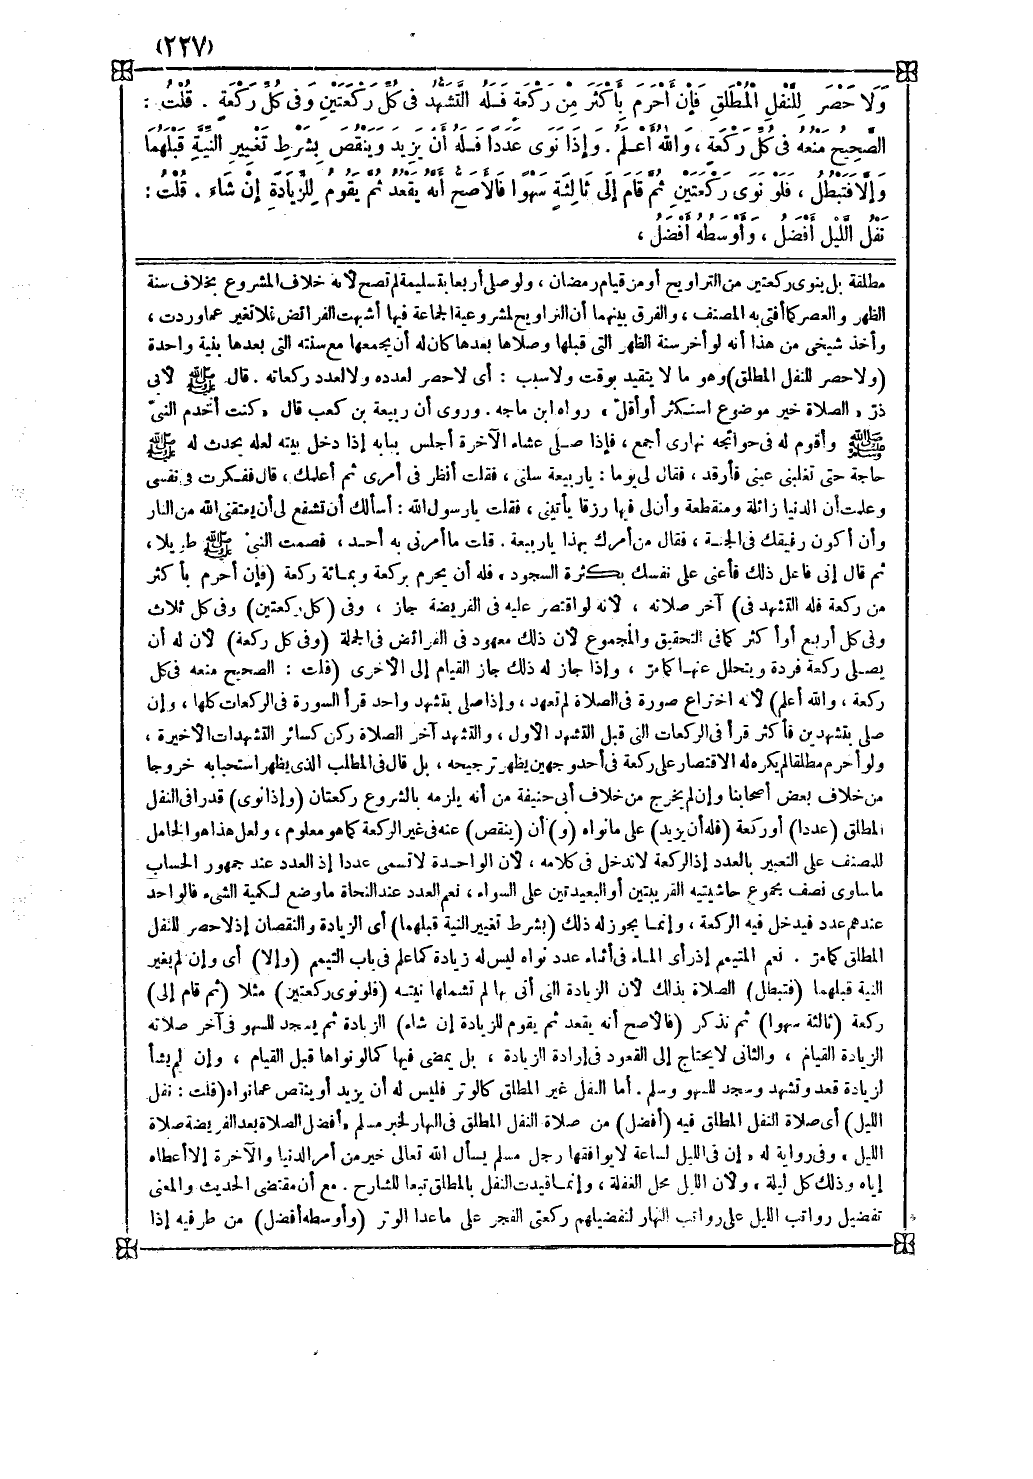 (٢٢٧)
وَلَا حَصْرَ لِلنَّفْلِ الْمُطْلَقِ فَإِنْ أَحْرَمَ بِأَكْثَرَ مِنْ رَكْعَةٍ فَلَهُ التَّشَهُّدُ فِى كُلِّ رَكْعَتَيْنِ وَفِى كُلِّ رَكْعَةٍ . قُلْتُ :
الصَّحِيحُ مَنْعُهُ فِى كُلِّ رَكْعَةٍ ، وَاللهُ أَعْلَمُ . وَإِذَا نَوَى عَدَدًا فَلَهُ أَنْ يَزِيدَ وَيَنْقُصَ بِشَرْطِ تَغْيِيرِ النِّيَّةِ قَبْلَهُمَا
وَإِلَّا فَتَبْطُلُ ، فَلَوْ نَوَى رَكْعَتَيْنِ ثُمَّ قَامَ إِلَى ثَالِثَةٍ سَهْوًا فَالْأَصَحُّ أَنَّهُ يَقْعُدُ ثُمَّ يَقُومُ لِلزِّيَادَةِ إِنْ شَاءَ . قُلْتُ :
نَفْلُ اللَّيْلِ أَفْضَلُ ، وَأَوْسَطُهُ أَفْضَلُ ،
مطلقة بل ينوى ركعتين من التراويح أو من قيام رمضان ، ولو صلى أربعا بتسليمة لم تصح لأنه خلاف المشروع بخلاف سنة
الظهر والعصر كما أفتى به المصنف ، والفرق بينهما أن التراويح لمشروعية الجماعة فيها أشبهت الفرائض فلا تغير عما وردت ،
وأخذ شيخى من هذا أنه لو أخر سنة الظهر التى قبلها وصلاها بعدها كان له أن يجمعها مع سنته التى بعدها بنية واحدة
(ولا حصر للنفل المطلق) وهو ما لا يتقيد بوقت ولا سبب : أى لا حصر لعدده ولا لعدد ركعاته . قال ﷺ لأبى
ذرّ « الصلاة خير موضوع استكثر أو أقلّ » رواه ابن ماجه . وروى أن ربيعة بن كعب قال « كنت أخدم النبىّ
ﷺ وأقوم له فى حوائجه نهارى أجمع ، فإذا صلى عشاء الآخرة أجلس ببابه إذا دخل بيته لعله يحدث له ﷺ
حاجة حتى تغلبنى عينى فأرقد ، فقال لى يوما : ياربيعة سلنى ، فقلت أنظر فى أمرى ثم أعلمك ، قال ففكرت فى نفسى
وعلمت أن الدنيا زائلة ومنقطعة وأن لى فيها رزقا يأتينى ، فقلت يارسول الله : أسألك أن تشفع لى أن يعتقنى الله من النار
وأن أكون رفيقك فى الجنة ، فقال من أمرك بهذا ياربيعة . قلت ما أمرنى به أحد ، فصمت النبىّ ﷺ طويلا ،
ثم قال إنى فاعل ذلك فأعنى على نفسك بكثرة السجود » فله أن يحرم بركعة وبمائة ركعة (فإن أحرم بأكثر
من ركعة فله التشهد فى) آخر صلاته ، لأنه لو اقتصر عليه فى الفريضة جاز ، وفى (كل ركعتين) وفى كل ثلاث
وفى كل أربع أو أكثر كما فى التحقيق والمجموع لأن ذلك معهود فى الفرائض فى الجملة (وفى كل ركعة) لأن له أن
يصلى ركعة فردة ويتحلل عنها كما مرّ ، وإذا جاز له ذلك جاز القيام إلى الأخرى (قلت : الصحيح منعه فى كل
ركعة ، والله أعلم) لأنه اختراع صورة فى الصلاة لم تعهد ، وإذا صلى بتشهد واحد قرأ السورة فى الركعات كلها ، وإن
صلى بتشهدين فأكثر قرأ فى الركعات التى قبل التشهد الأول ، والتشهد آخر الصلاة ركن كسائر التشهدات الأخيرة ،
ولو أحرم مطلقا لم يكره له الاقتصار على ركعة فى أحد وجهين يظهر ترجيحه ، بل قال فى المطلب الذى يظهر استحبابه خروجا
من خلاف بعض أصحابنا وإن لم يخرج من خلاف أبى حنيفة من أنه يلزمه بالشروع ركعتان (وإذا نوى) قدرا فى النفل
المطلق (عددا) أو ركعة (فله أن يزيد) على ما نواه (و) أن (ينقص) عنه فى غير الركعة كما هو معلوم ، ولعل هذا هو الحامل
للمصنف على التعبير بالعدد إذ الركعة لا تدخل فى كلامه ، لأن الواحدة لا تسمى عددا إذ العدد عند جمهور الحساب
ما ساوى نصف مجموع حاشيتيه القريبتين أو البعيدتين على السواء ، نعم العدد عند النحاة ما وضع لكمية الشىء فالواحد
عندهم عدد فيدخل فيه الركعة ، وإنما يجوز له ذلك (بشرط تغيير النية قبلهما) أى الزيادة والنقصان إذ لا حصر للنفل
المطلق كما مرّ . نعم المتيمم إذ رأى الماء فى أثناء عدد نواه ليس له زيادة كما علم فى باب التيمم (وإلا) أى وإن لم يغير
النية قبلهما (فتبطل) الصلاة بذلك لأن الزيادة التى أتى بها لم تشملها نيته (فلو نوى ركعتين) مثلا (ثم قام إلى)
ركعة (ثالثة سهوا) ثم تذكر (فالأصح أنه يقعد ثم يقوم للزيادة إن شاء) الزيادة ثم يسجد للسهو فى آخر صلاته
الزيادة القيام ، والثانى لا يحتاج إلى القعود فى إرادة الزيادة ، بل يمضى فيها كما لو نواها قبل القيام ، وإن لم يشأ
لزيادة قعد وتشهد وسجد للسهو وسلم . أما النفل غير المطلق كالوتر فليس له أن يزيد أو ينقص عما نواه (قلت : نفل
الليل) أى صلاة النفل المطلق فيه (أفضل) من صلاة النفل المطلق فى النهار لخبر مسلم « أفضل الصلاة بعد الفريضة صلاة
الليل » وفى رواية له « إن فى الليل لساعة لا يوافقها رجل مسلم يسأل الله تعالى خير من أمر الدنيا والآخرة إلا أعطاه
إياه وذلك كل ليلة » ولأن الليل محل الغفلة ، وإنما قيدت النفل بالمطلق تبعا للشارح . مع أن مقتضى الحديث والمعنى
تفضيل رواتب الليل على رواتب النهار لتفضيلهم ركعتى الفجر على ما عدا الوتر (وأوسطه أفضل) من طرفيه إذا